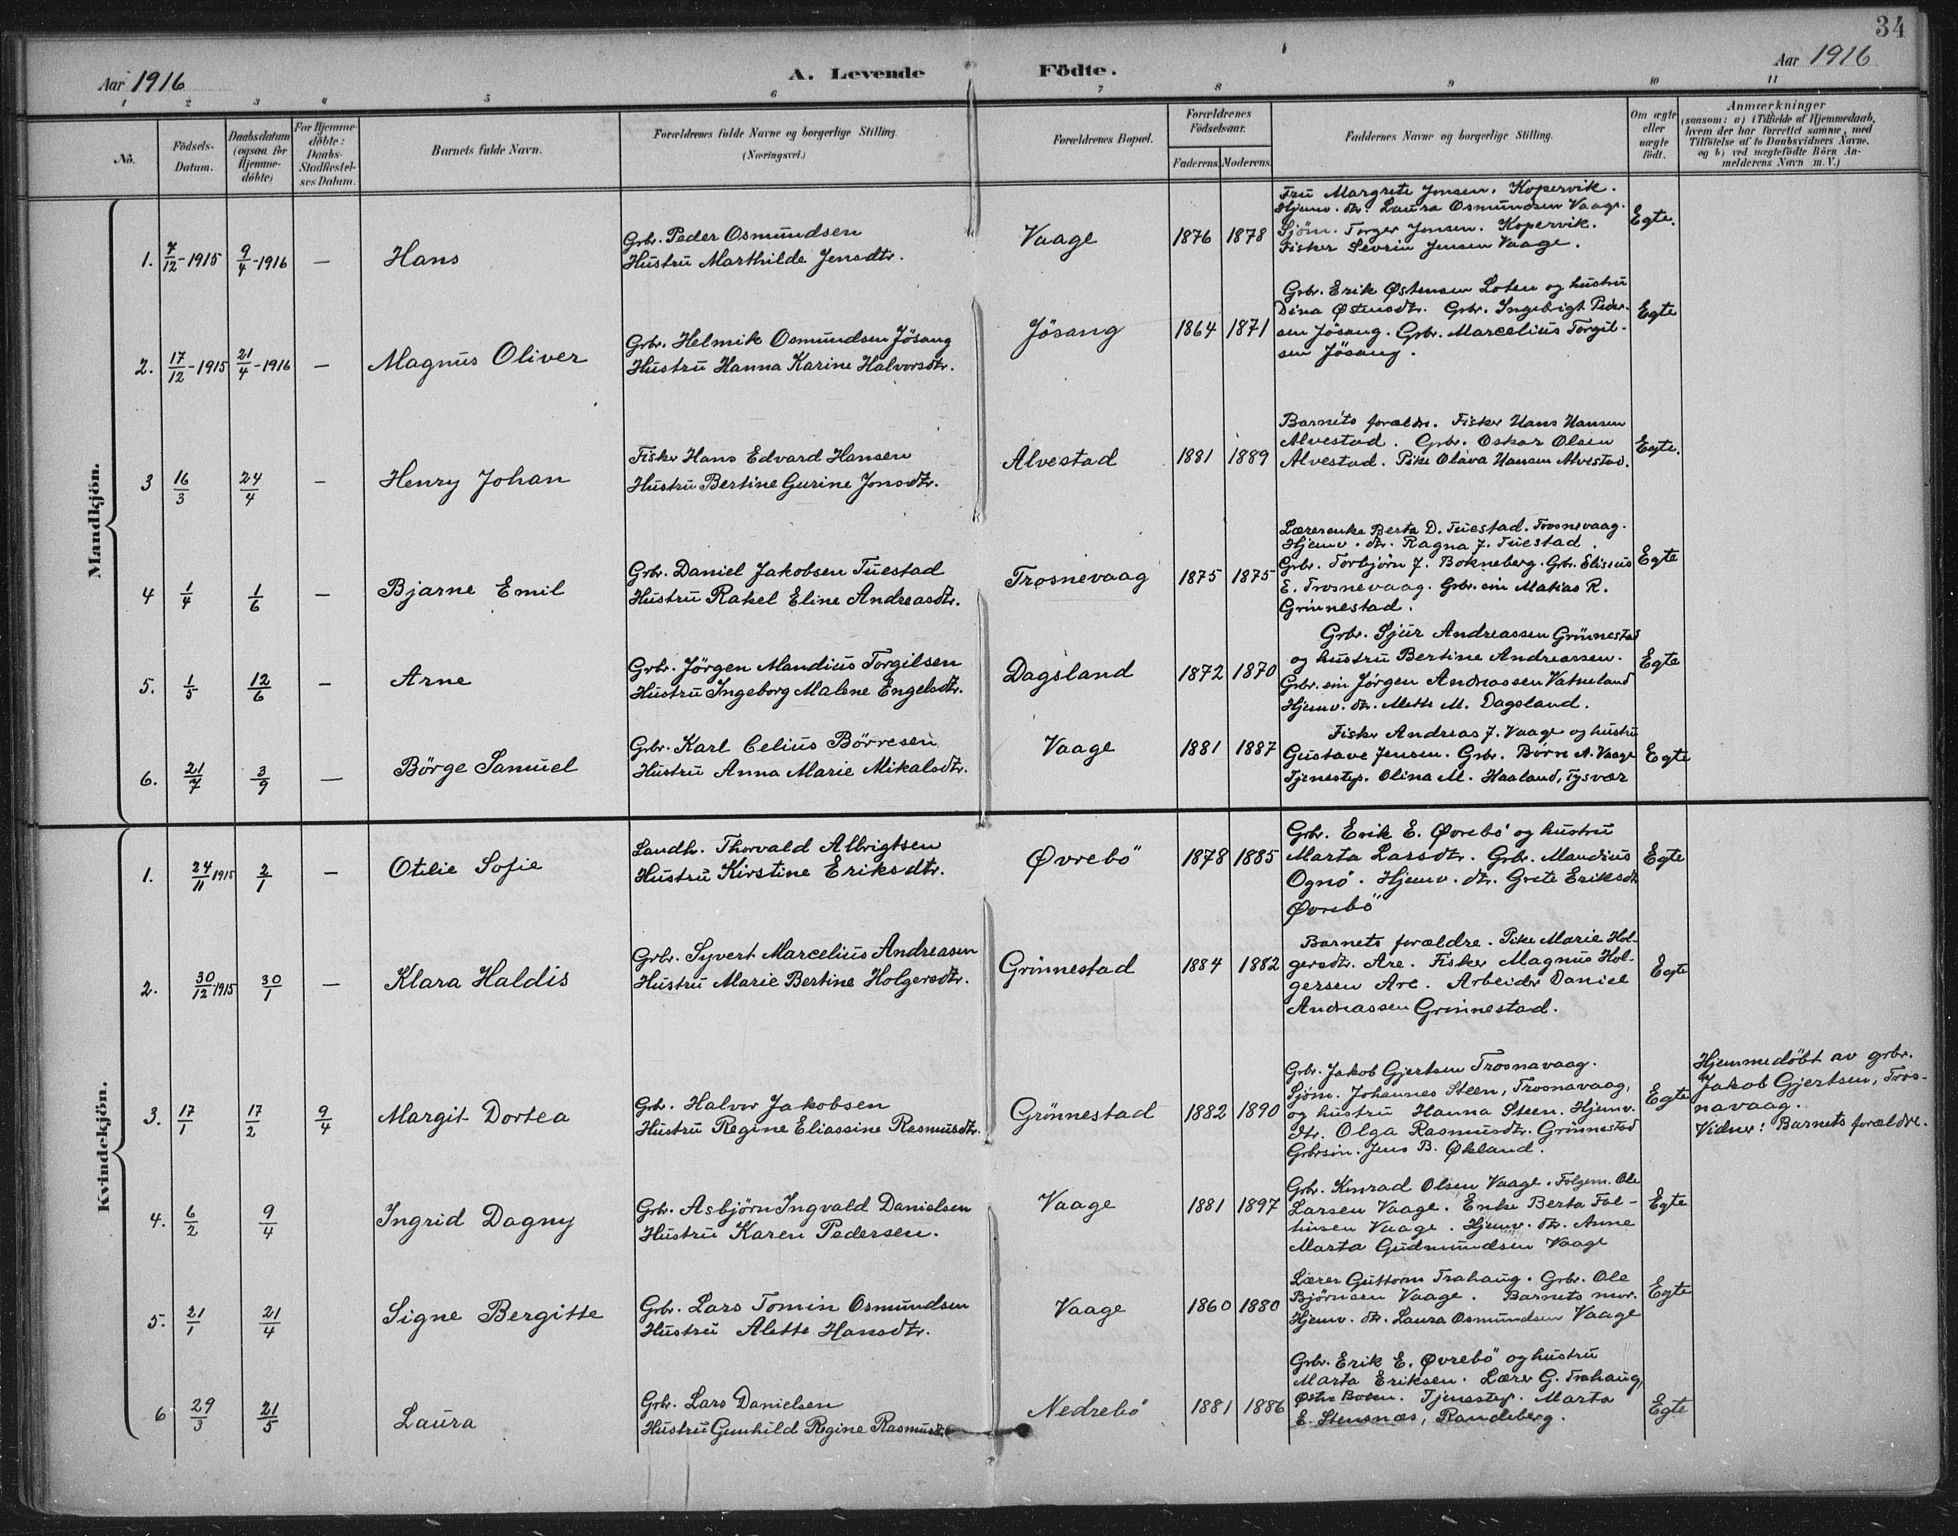 34
Aar 1916
A. Levende Födte.
Aar 1916
1 2 3 4 5 6 7 8 9 10 11
No.
Födsels-
Datum.
Daabsdatum
(ogsaa for
Hjemme-
döbte)
For Hjemme-
döbte:
Daabs-
Stadfæstel-
ses Datum.
Barnets fulde Navn.
Forældrenes fulde Navne og borgerlige Stilling.
(Næringsvei.)
Forældrenes Bopæl.
Forældrenes
Födselsaar.
Faderens. Moderens.
Faddernes Navne og borgerlige Stilling.
Om ægte
eller
uægte
födt.
Anmærkninger
(saasom: a) i Tilfælde af Hjemmedaab,
hvem der har forrettet samme, med
Tilföielse af to Daabsvidners Navne,
og b) ved uægtefödte Börn An-
melderens Navn m. V.)
Mandkjön.
1. 7/12-1915 9/4-1916 — Hans
Grbr. Peder Osmundsen
Hustru Marthilde Jensdtr.
Vaage 1876 1878
Fru Margrete Jonsen. Kopervik.
Hjemv. dtr. Laura Osmundsen Vaage.
Sjöm. Torger Jonsen. Kopervik.
Fisker Sevrin Jensen Vaage.
Egte.
2. 17/12-1915 21/4-1916 — Magnus Oliver
Grbr. Helmik Osmundsen Jösang
Hustru Hanna Karine Halvorsdtr.
Jösang 1864 1871
Grbr. Erik Østensen Loten og hustru
Dina Østensdtr. Grbr. Ingebrigt Peder-
sen Jösang. Grbr. Marcelius Torgil-
sen Jösang.
Egte
3 16/3 24/4 — Henry Johan
Fisker Hans Edvard Hansen
Hustru Bertine Gurine Jonsdtr.
Alvestad 1881 1889
Barnets forældre. Fisker Hans Hansen
Alvestad. Grbr. Oskar Olsen
Alvestad. Pike Olava Hansen Alvestad.
Egte.
4 1/4 1/6 — Bjarne Emil
Grbr. Daniel Jakobsen Tuestad
Hustru Rakel Eline Andreasdtr.
Trosnevaag 1875 1875
Lærerenke Berta D. Tuestad. Trosnevaag.
Hjemv. dtr. Ragna J. Tuestad
Grbr. Torbjörn J. Bokneberg. Grbr. Eliseus
E. Trosnevaag. Grbr. sön Matias R.
Grönnestad.
Egte
5. 1/5 12/6 — Arne
Grbr. Jörgen Mandius Torgilsen
Hustru Ingeborg Malene Engelsdtr.
Dagsland 1872 1870
Grbr. Sjur Andreassen Grönnestad
og hustru Bertine Andreassen.
Grbr. sön Jörgen Andreassen Vatneland
Hjemv. dtr. Mette M. Dagsland.
Egte
6. 21/7 3/9 — Börge Samuel
Grbr. Karl Celius Börresen
Hustru Anna Marie Mikalsdtr.
Vaage 1881 1887
Fisker Andreas J. Vaage og hustru
Gustave Jensen. Grbr. Börn A. Vaage
Tjenestep. Olina M. Haaland, Tysvær
Egte
Kvindekjön.
1. 24/11 1915 2/1 — Otilie Sofie
Landh. Thorvald Albrigtsen
Hustru Kirstine Eriksdtr.
Øvrebö 1878 1885
Grbr. Erik E. Øvrebö og hustru
Marta Larsdtr. Grbr. Mandius
Ognö. Hjemv. dtr. Grete Eriksdtr
Øvrebö
Egte
2. 30/12 1915 30/1 — Klara Haldis
Grbr. Syvert Marcelius Andreasen
Hustru Marie Bertine Holgersdtr.
Grönnestad 1884 1882
Barnets forældre. Pike Marie Hol-
gersdtr. Are. Fisker Magnus Hol-
gersen Are. Arbeider Daniel
Andreassen Grönnestad.
Egte
3. 17/1 17/2 9/4 Margit Dortea
Grbr. Halvor Jakobsen
Hustru Regine Eliassine Rasmusdtr.
Grönnestad 1882 1890
Grbr. Jakob Gjertsen Trosnavaag.
Sjöm. Johannes Steen, Trosnavaag,
og hustru Hanna Steen. Hjemv.
dtr. Olga Rasmusdtr. Grönnestad
Grbrsön. Jens B. Økland.
Egte
Hjemmedöbt av grbr.
Jakob Gjertsen, Tros-
navaag.
Vidner: Barnets forældre.
4. 6/2 9/4 Ingrid Dagny
Grbr. Asbjörn Ingvald Danielsen
Hustru Karen Pedersen.
Vaage 1881 1897
Grbr. Konrad Olsen Vaage. Folgem. Ole
Larsen Vaage. Enke Berta Tol-
lausen Vaage. Hjemv. dtr. Anne
Marta Gudmundsen Vaage
Egte
5. 21/1 21/4 Signe Bergitte
Grbr. Lars Tomin Osmundsen
Hustru Alette Hansdtr.
Vaage 1860 1880
Lærer Guttorm Trahaug. Grbr. Ole
Björnsen Vaage. Barnets mor.
Hjemv. dtr. Laura Osmundsen Vaage
Egte
6 29/3 21/5 Laura
Grbr. Lars Danielsen
Hustru Gunhild Regine Rasmusdtr.
Nedrebö 1881 1886
Grbr. Erik E. Øvrebö og hustru
Marta Eriksen. Lærer G. Trahaug,
Østre Boken. Tjenestep. Marta
E. Stensnæs, Randeberg.
Egte